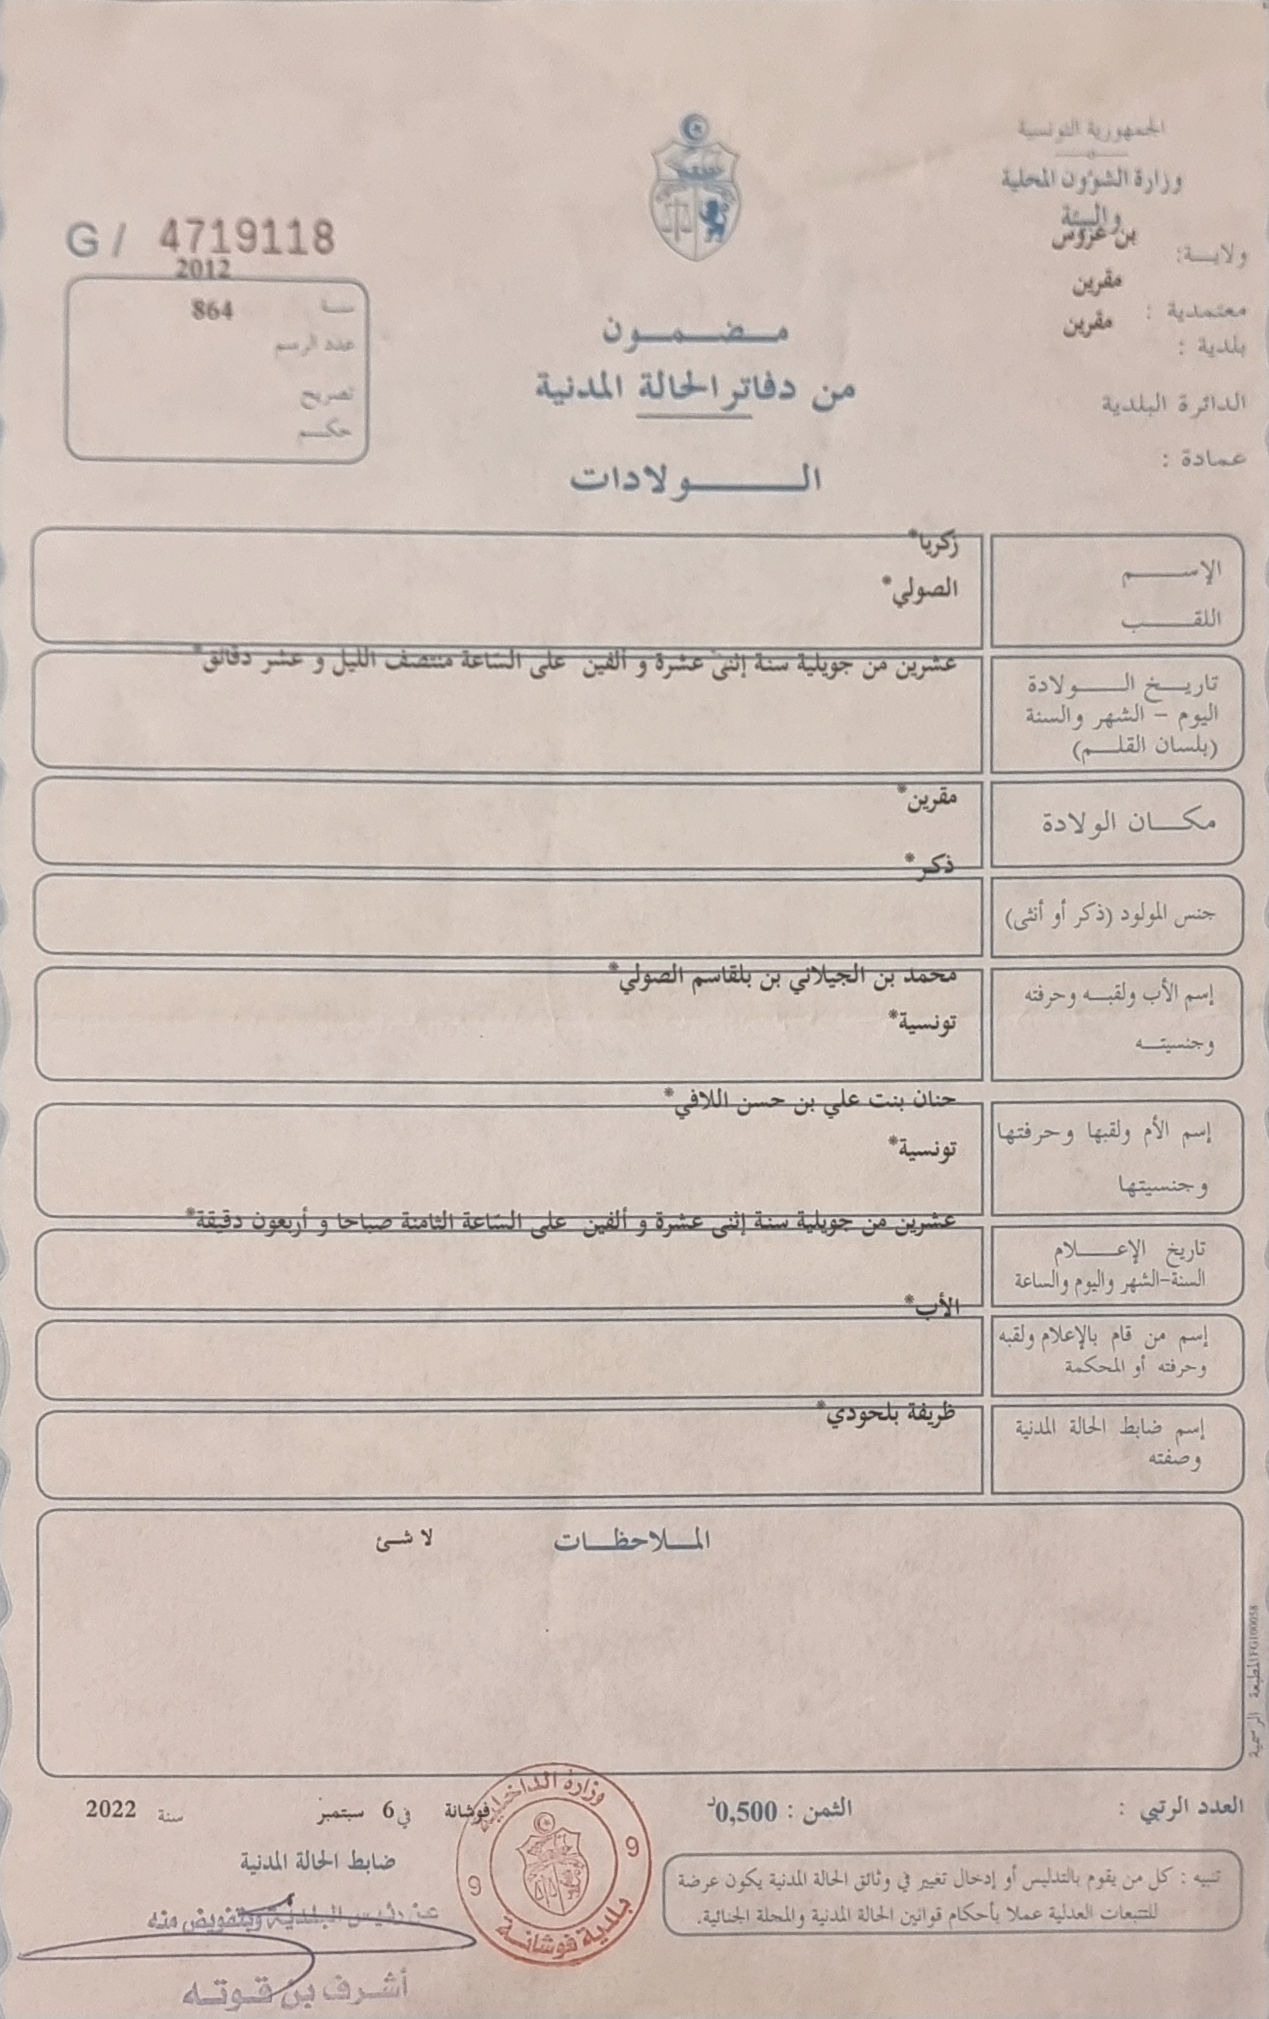 الجمهورية التونسية
وزارة الشؤون المحلية
والبيئة
ولاية: بن عروس
معتمدية : مقرين
بلدية : مقرين
الدائرة البلدية
عمادة :
G / 4719118
سنة 2012
عدد الرسم 864
تصريح
حكم
مضمون
من دفاتر الحالة المدنية
الولادات
الإسم زكريا*
اللقب الصولي*
تاريخ الولادة
اليوم – الشهر والسنة
(بلسان القلم)
عشرين من جويلية سنة إثنى عشرة و ألفين على الساعة منتصف الليل و عشر دقائق*
مكان الولادة مقرين*
جنس المولود (ذكر أو أنثى) ذكر*
إسم الأب ولقبه وحرفته
وجنسيته
محمد بن الجيلاني بن بلقاسم الصولي*
تونسية*
إسم الأم ولقبها وحرفتها
وجنسيتها
حنان بنت علي بن حسن اللافي*
تونسية*
تاريخ الإعلام
السنة-الشهر واليوم والساعة
عشرين من جويلية سنة إثنى عشرة و ألفين على الساعة الثامنة صباحا و أربعون دقيقة*
إسم من قام بالإعلام ولقبه
وحرفته أو المحكمة
الأب*
إسم ضابط الحالة المدنية
وصفته
ظريفة بلحودي*
الملاحظات لا شئ
المطبعة الرسمية FG100058
العدد الرتبي :
الثمن : 0,500د
فوشانة في 6 سبتمبر سنة 2022
ضابط الحالة المدنية
تنبيه : كل من يقوم بالتدليس أو إدخال تغيير في وثائق الحالة المدنية يكون عرضة
للتتبعات العدلية عملا بأحكام قوانين الحالة المدنية والمجلة الجنائية.
وزارة الداخلية
9 9
بلدية فوشانة
عن رئيس البلدية وبتفويض منه
أشرف بن قوته